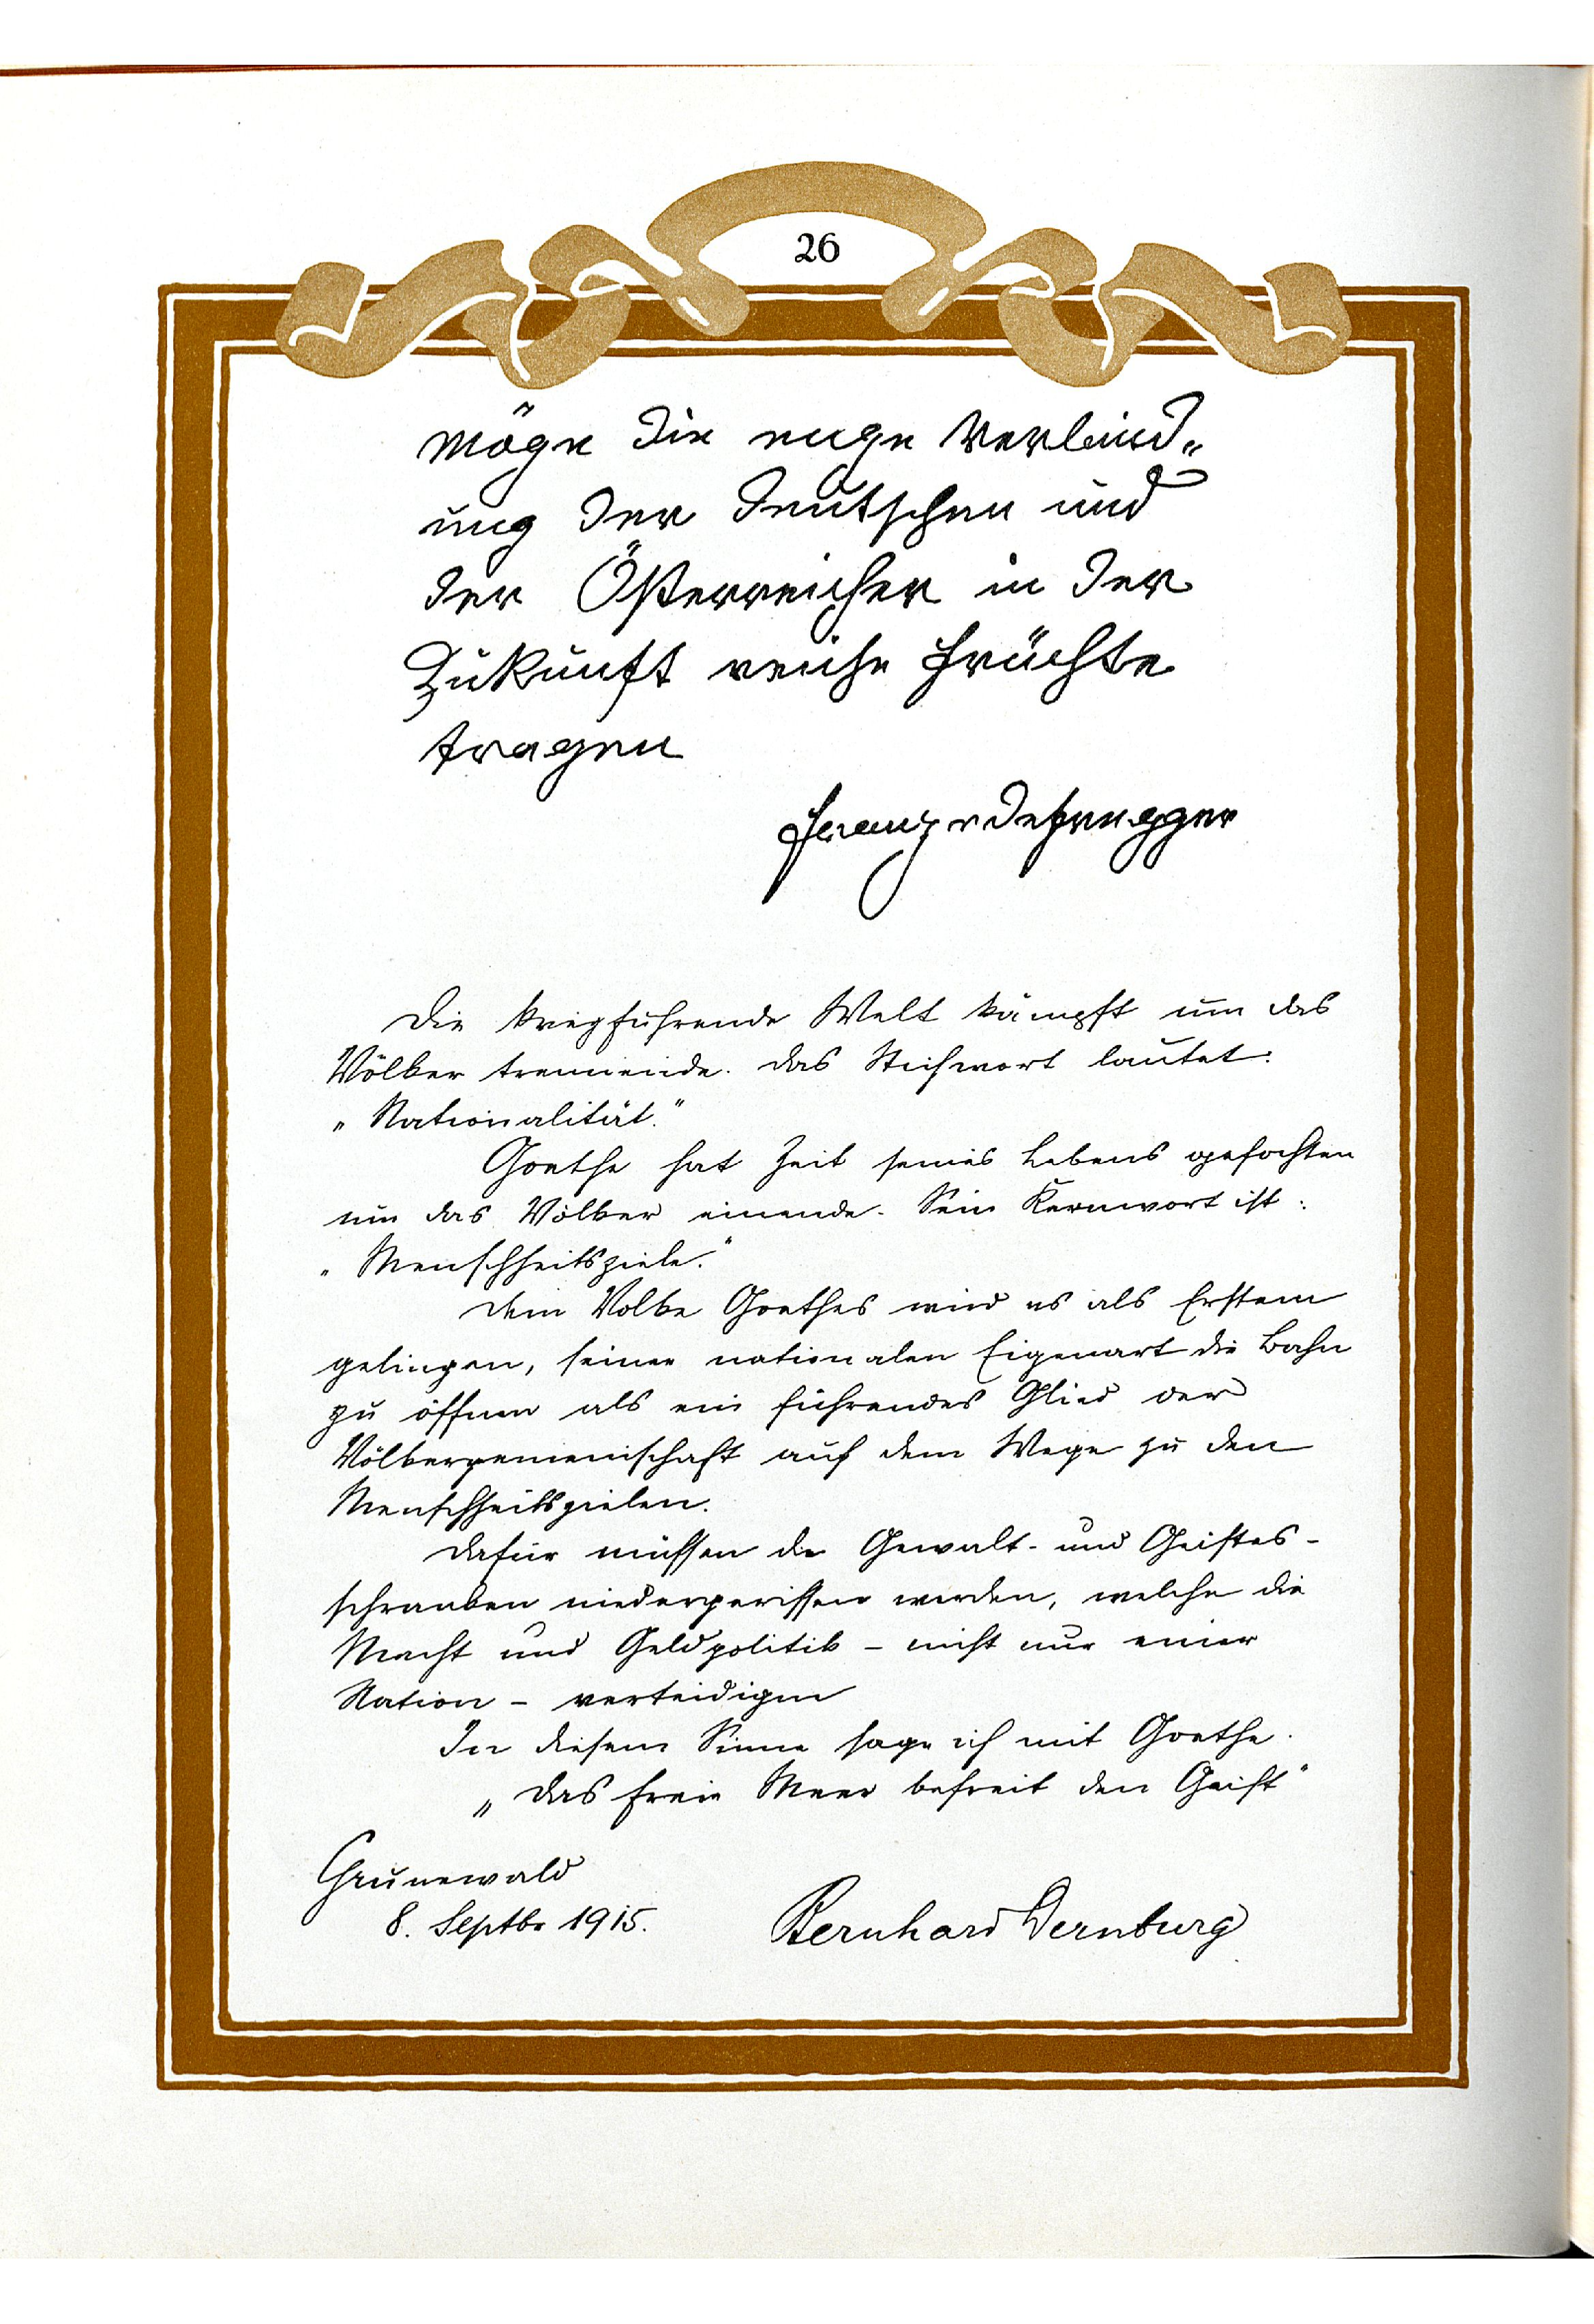 26
Möge die enge Verbind„
ung der Deutschen und
der Österreicher in der
Zukunft reiche Früchte
tragen
Franz v Defregger
Die kriegführende Welt kämpft um das
Völker trennende. Das Stichwort lautet:
„Nationalität."
Goethe hat Zeit seines Lebens gefochten
um das Völker einende. Sein Kernwort ist:
„Menschheitsziele."
Dem Volke Goethes wird es als Erstem
gelingen, seiner nationalen Eigenart die Bahn
zu öffnen als ein führendes Glied der
Völkergemeinschaft auf dem Wege zu den
Menschheitszielen.
Dafür müssen die Gewalt- und Geistes-
schranken niedergerissen werden, welche die
Macht und Geldpolitik – nicht nur einer
Nation – verteidigen
In diesem Sinne sage ich mit Goethe.
„Das freie Meer befreit den Geist"
Grunewald
8. Septbr 1915.
Bernhard Dernburg